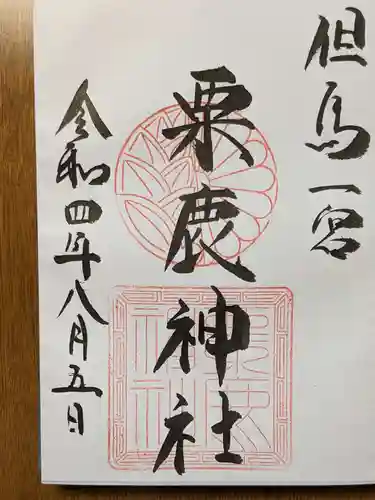 但馬一宮
粟鹿神社
令和四年八月五日